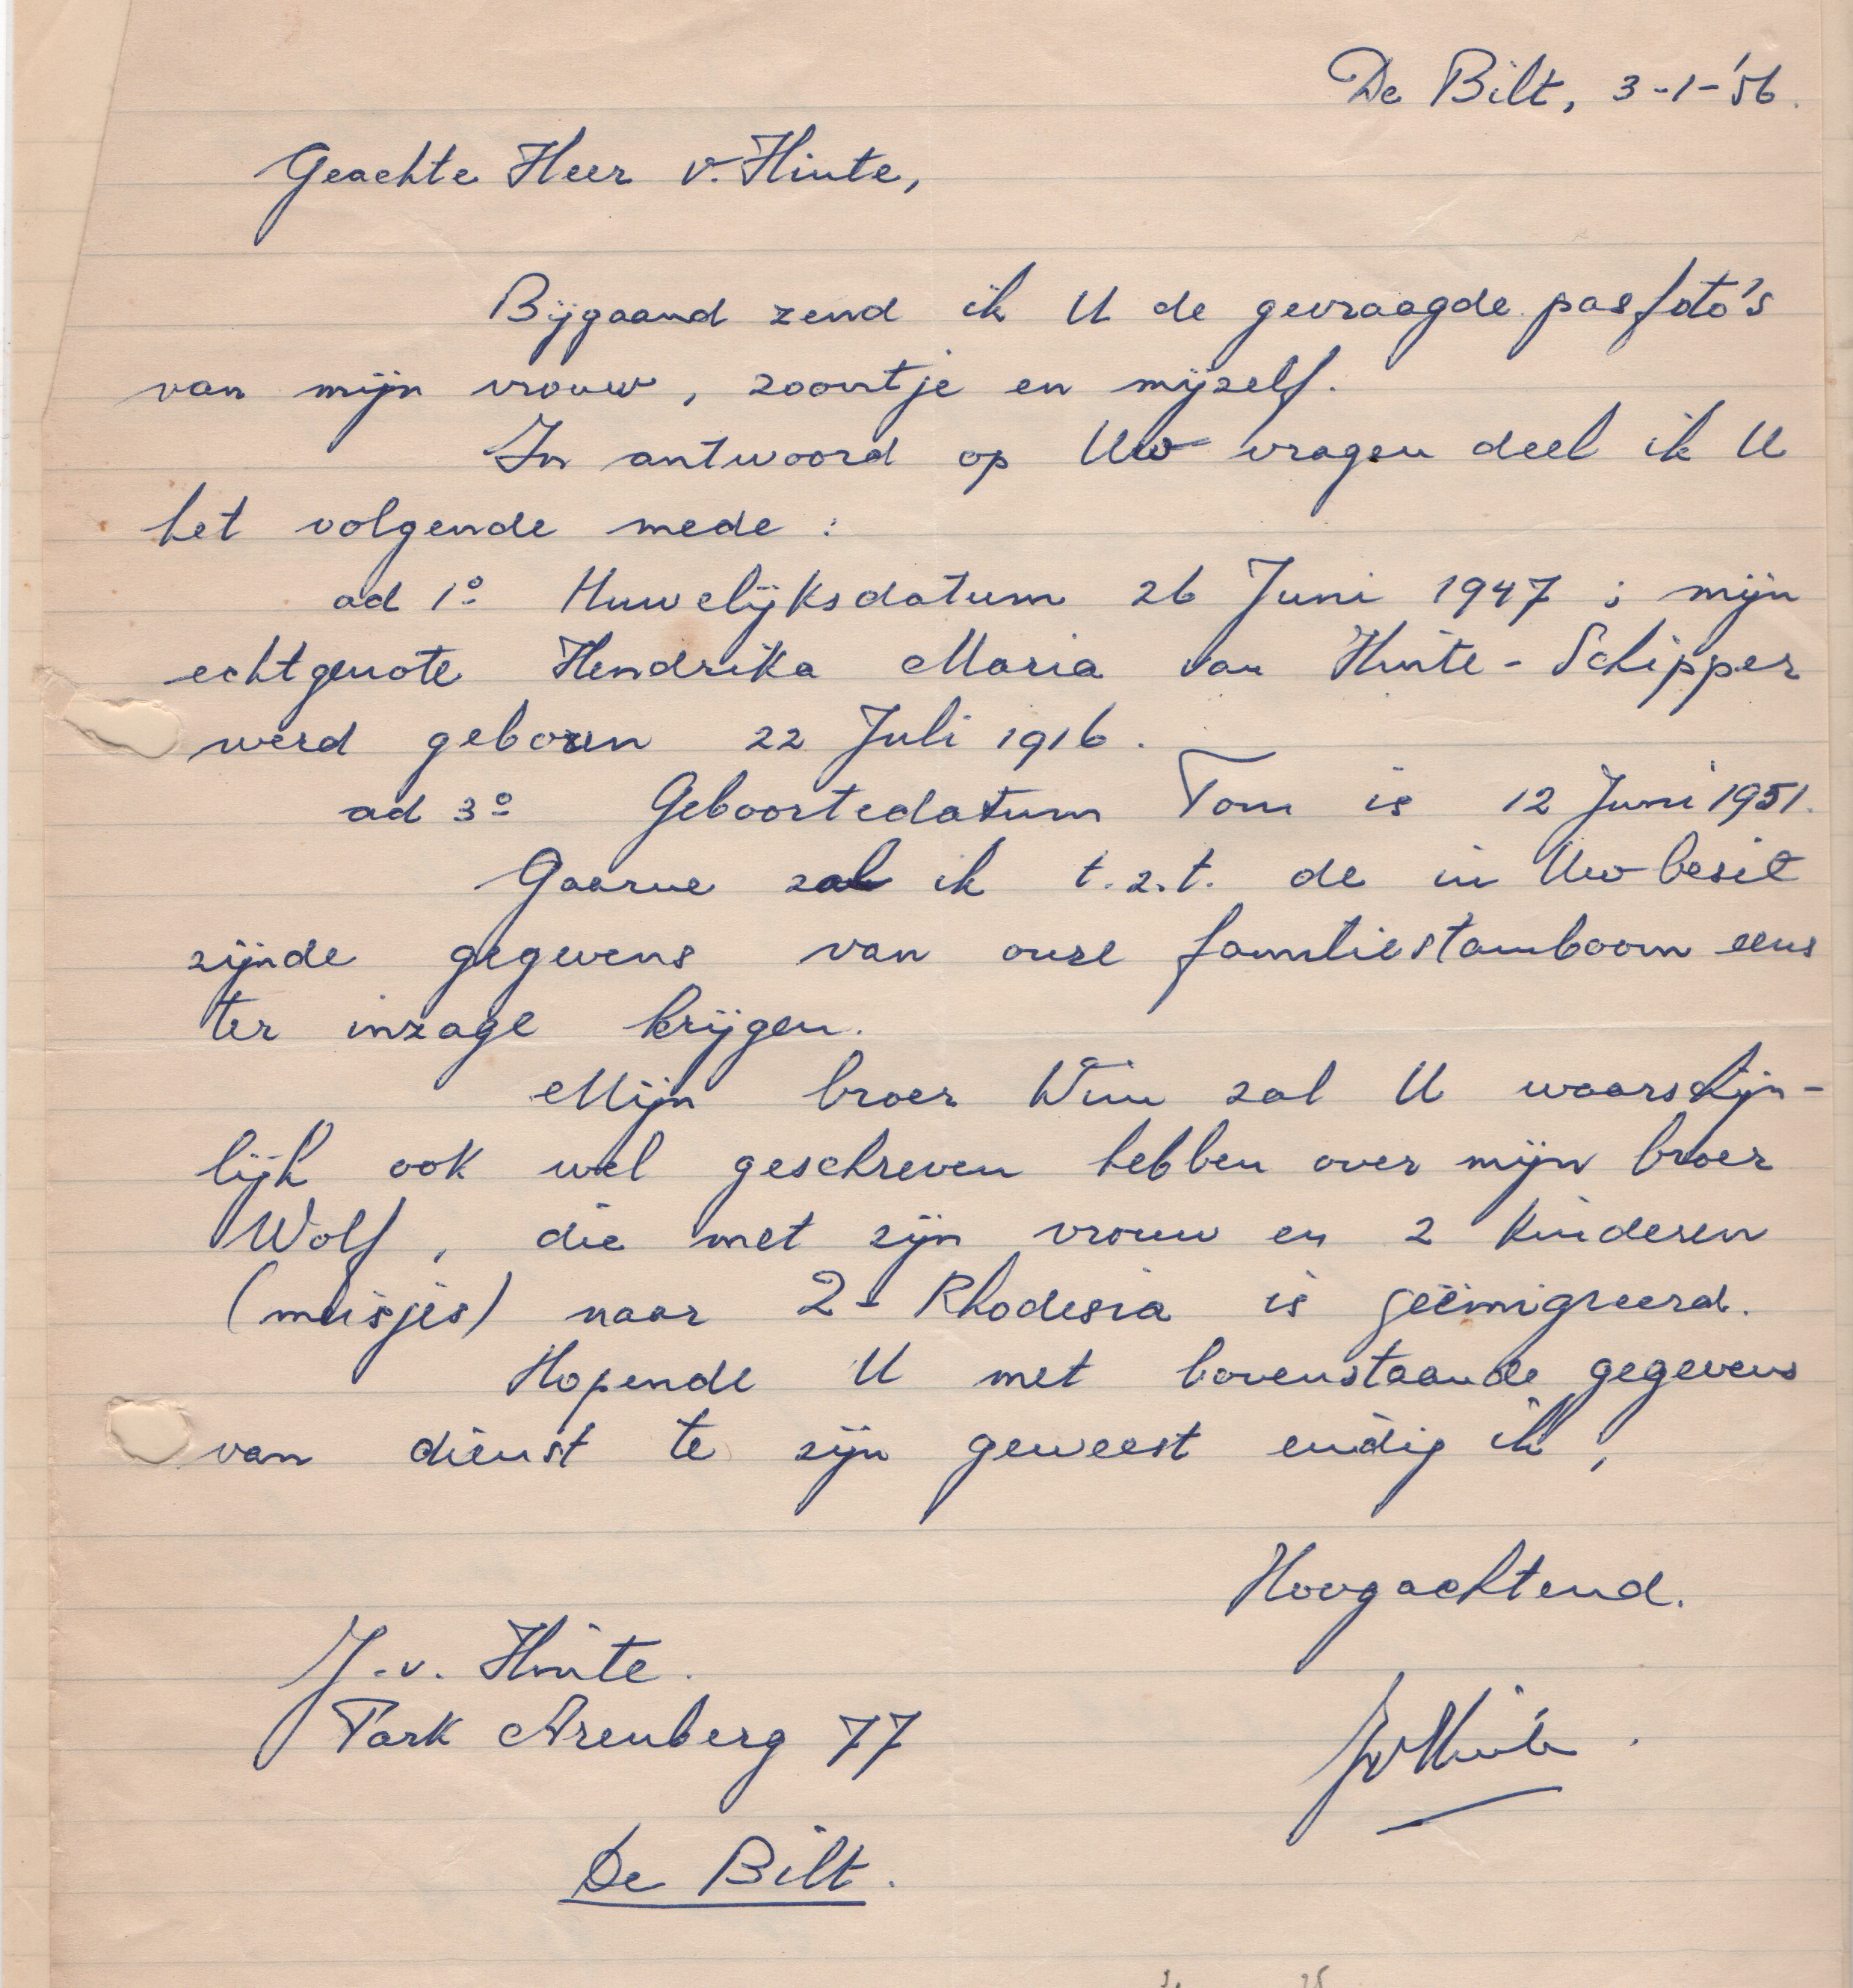 De Bilt, 3-1-'56.
Geachte Heer v. Hinte,
Bijgaand zend ik U de gevraagde pasfoto's
van mijn vrouw, zoontje en mijzelf.
In antwoord op Uw vragen deel ik U
het volgende mede :
ad 1º Huwelijksdatum 26 Juni 1947 ; mijn
echtgenote Hendrika Maria van Hinte - Schipper
werd geboren 22 Juli 1916.
ad 3º Geboortedatum Tom is 12 Juni 1951.
Gaarne zal ik t.z.t. de in Uw bezit
zijnde gegevens van onze familiestamboom eens
ter inzage krijgen.
Mijn broer Wim zal U waarschijn-
lijk ook wel geschreven hebben over mijn broer
Wolf, die met zijn vrouw en 2 kinderen
(meisjes) naar Z- Rhodesia is geëmigreerd.
Hopende U met bovenstaande gegevens
van dienst te zijn geweest eindig ik,
Hoogachtend.
J. v. Hinte.
Park Arenberg 77
JvHinte.
De Bilt.